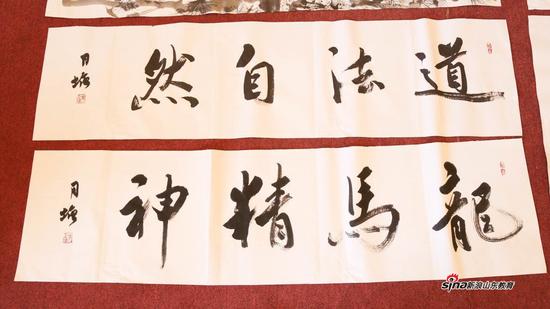 道法自然
月塘
龍馬精神
月塘
sina新浪山东教育